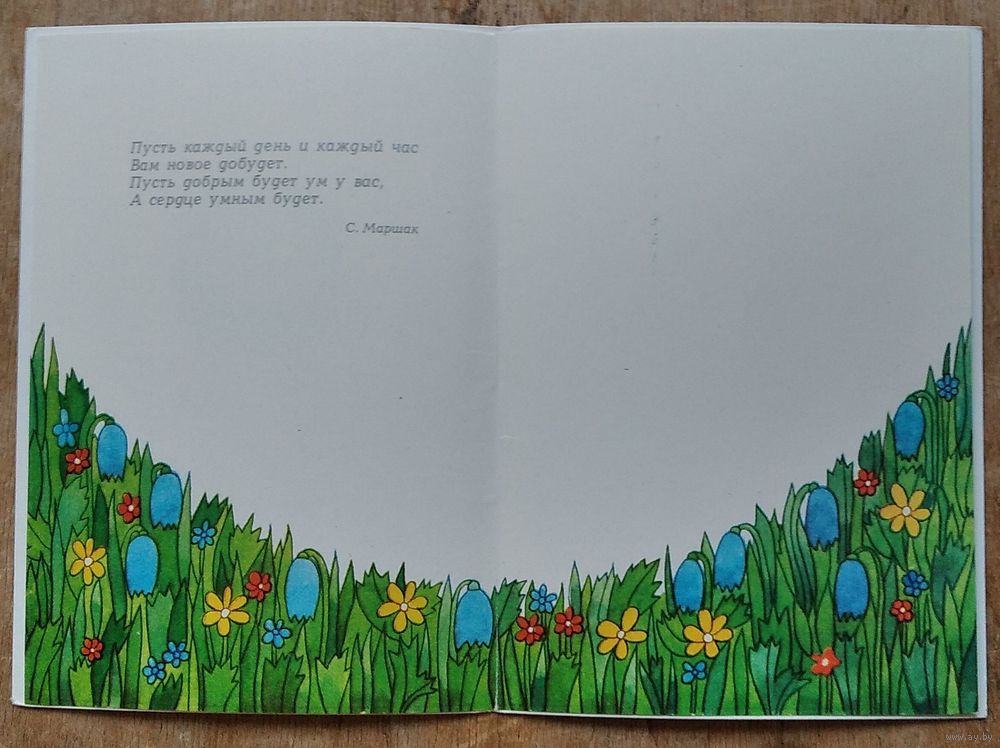 Пусть каждый день и каждый час
Вам новое добудет.
Пусть добрым будет ум у вас,
А сердце умным будет.
С. Маршак
www.ay.by